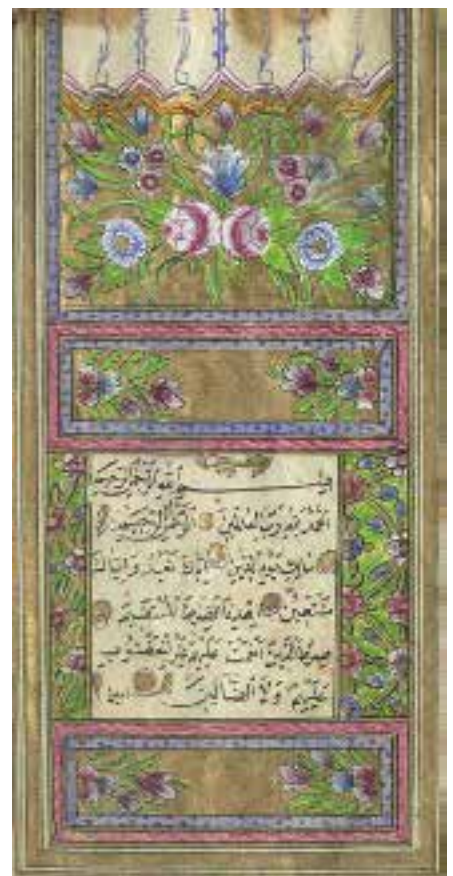 بسم الله الرحمن الرحيم
الحمد لله رب العالمين الرحمن الرحيم
مالك يوم الدين اياك نعبد واياك
نستعين اهدنا الصراط المستقيم
صراط الذين انعمت عليهم غير المغضوب
عليهم ولا الضالين امين